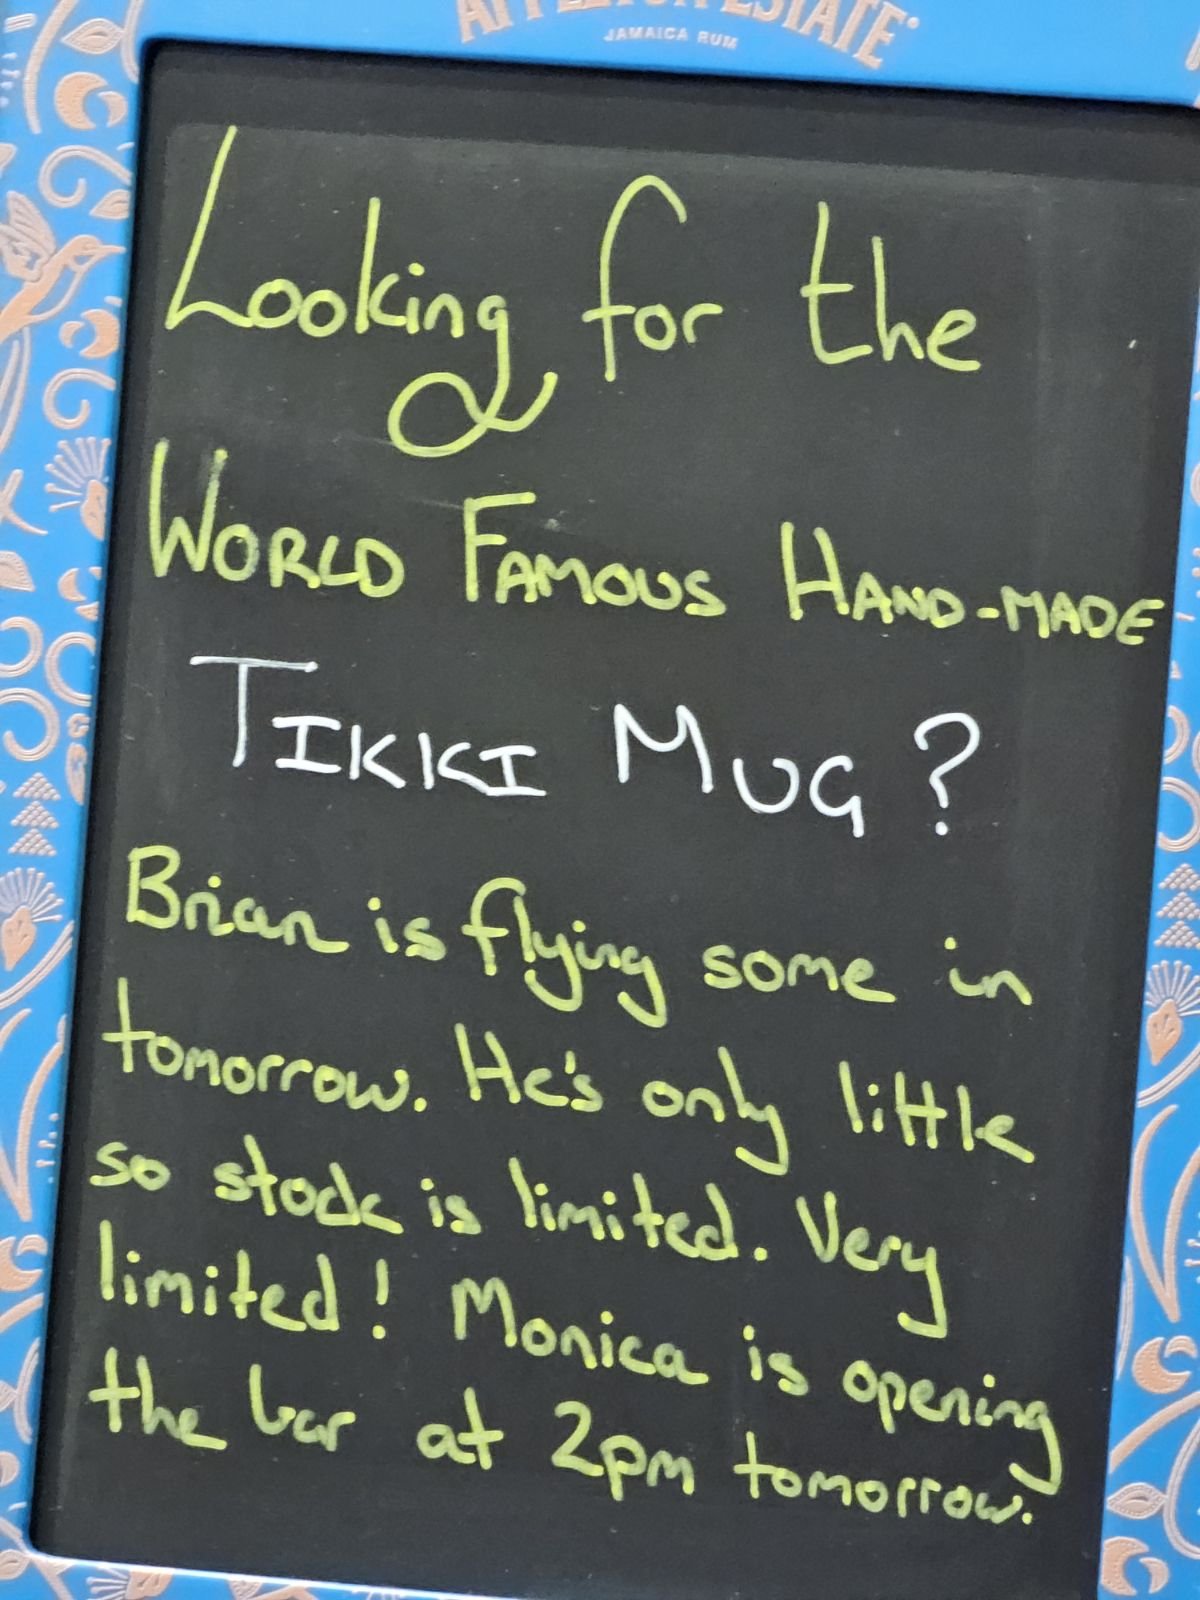 APPLETON ESTATE
JAMAICA RUM
Looking for the
WORLD FAMOUS HAND-MADE
TIKKI MUG?
Brian is flying some in
tomorrow. He's only little
so stock is limited. Very
limited! Monica is opening
the bar at 2pm tomorrow.